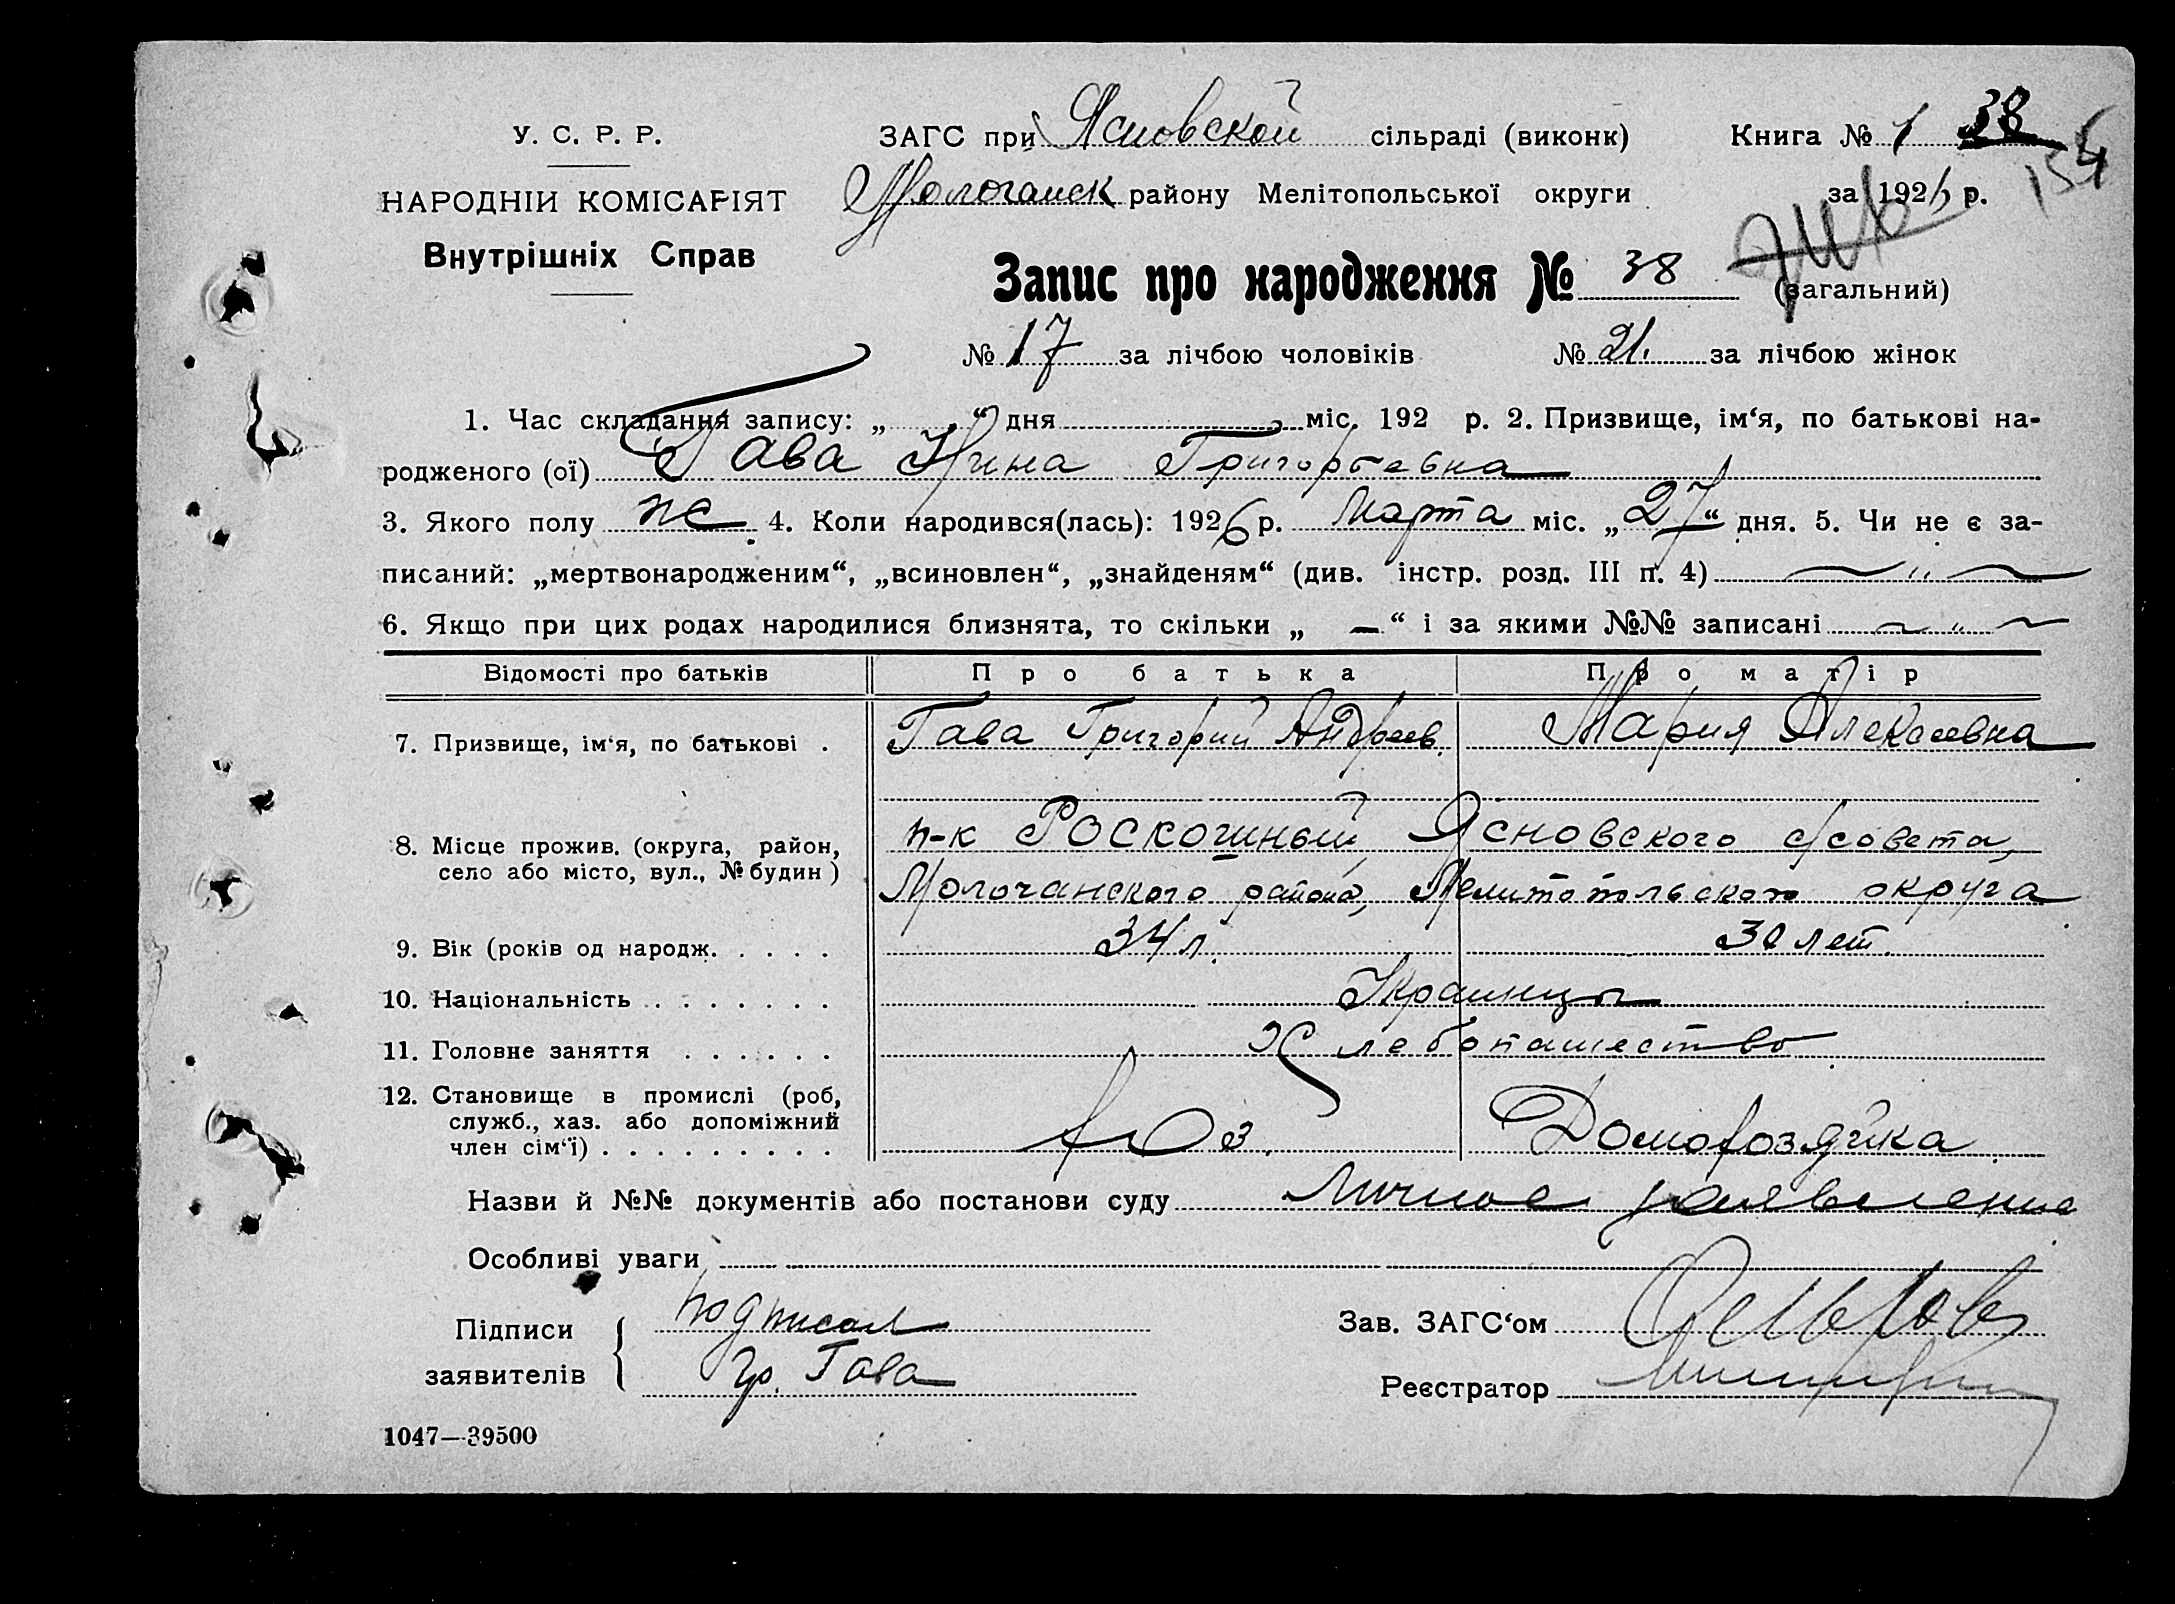 У. С. Р. Р.
НАРОДНІЙ КОМІСАРІЯТ
Внутрішніх Справ
ЗАГС при Ясновской сільраді (виконк)
Молочанск району Мелітопольської округи
Книга № 1 38
134
за 1926 р.
Запис про народження № 38 (загальний)
№ 17 за лічбою чоловіків № 21. за лічбою жінок
1. Час складання запису: „ “ дня міс. 192 р. 2. Призвище, ім‘я, по батькові на-
родженого (ої) Гава Нина Григорьевна
3. Якого полу же 4. Коли народився(лась): 1926 р. Марта міс. „27“ дня. 5. Чи не є за-
писаний: „мертвонародженим“, „всиновлен“, „знайденям“ (див. інстр. розд. III п. 4) — „ —
6. Якщо при цих родах народилися близнята, то скільки „ — “ і за якими №№ записані — „ —
Відомості про батьків Про батька Про матір
7. Призвище, ім‘я, по батькові . Гава Григорий Андреев. Мария Алексеевна
8. Місце прожив. (округа, район, село або місто, вул., № будин) п-к Роскошный, Ясновского с/совета,
Молочанского района, Мелитопольского округа
9. Вік (років од народж. . . . . 34 л. 30 лет.
10. Національність . . . . . . . Украинцы
11. Головне заняття . . . . . . Хлебопашество
12. Становище в промислі (роб, служб., хаз. або допоміжний член сім‘ї) . . . . . . . . . хоз. Домохозяйка
Назви й №№ документів або постанови суду Личное заявление
Особливі уваги
Підписи заявителів { подписал
Гр. Гава
Зав. ЗАГС‘ом
Реєстратор
1047—39500